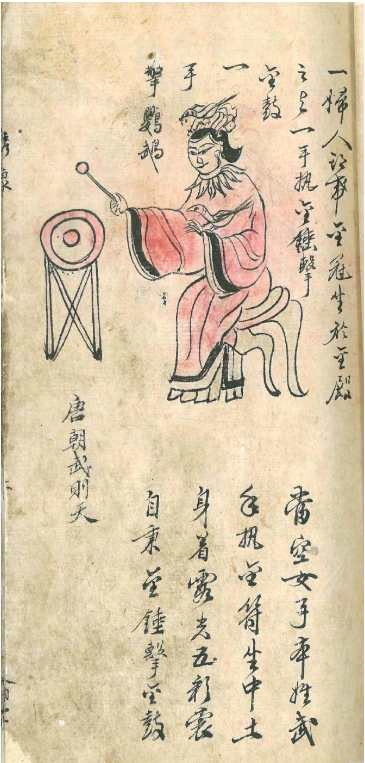 一婦人頭帶金冠坐於金殿
之上一手执金錘擊
金鼓
一
手
擎鸚鵡
唐朝武則天
當空女子本姓武
手执金符坐中土
身着霞光五彩裳
自秉金錘擊金鼓